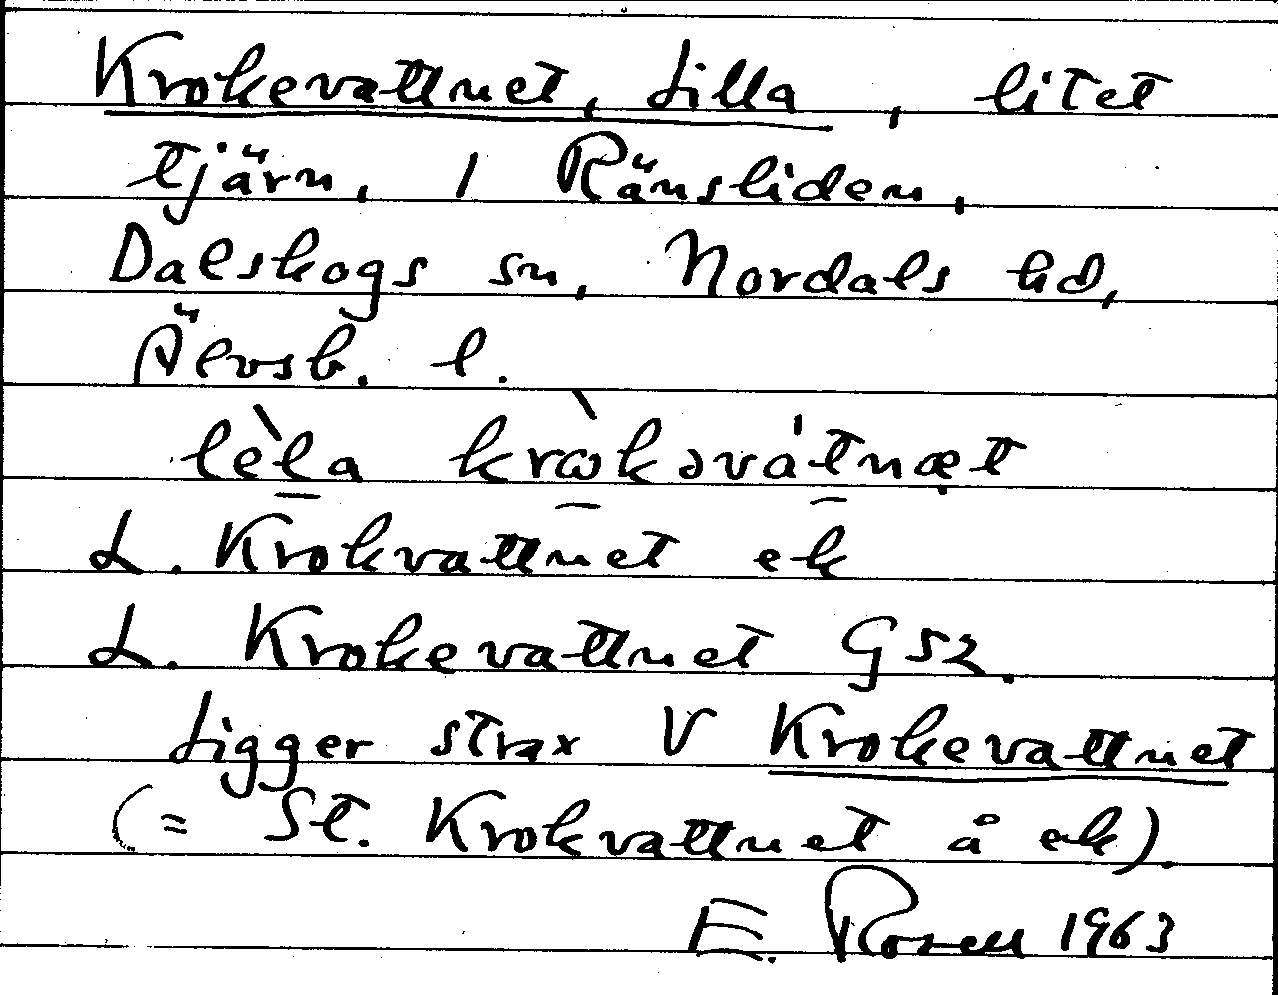 Krokevattnet, Lilla, litet
tjärn, 1 Ränsliden,
Dalskogs sn, Nordals hd,
Älvsb. l.
lèla krωkəvátnæt
L. Krokvattnet ek
L. Krokevattnet G52.
Ligger strax V Krokevattnet
(= St. Krokvattnet å ek).
E. Rosell 1963